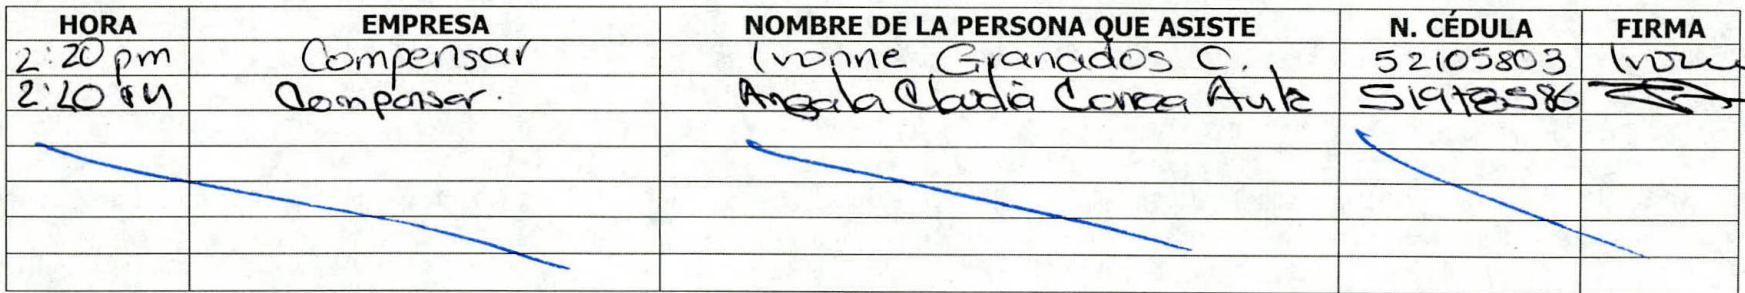 HORA EMPRESA NOMBRE DE LA PERSONA QUE ASISTE N. CÉDULA FIRMA
2:20 pm Compensar Ivonne Granados C. 52105803 Ivonne
2:20 PM Compensar. Angela Claudia Correa